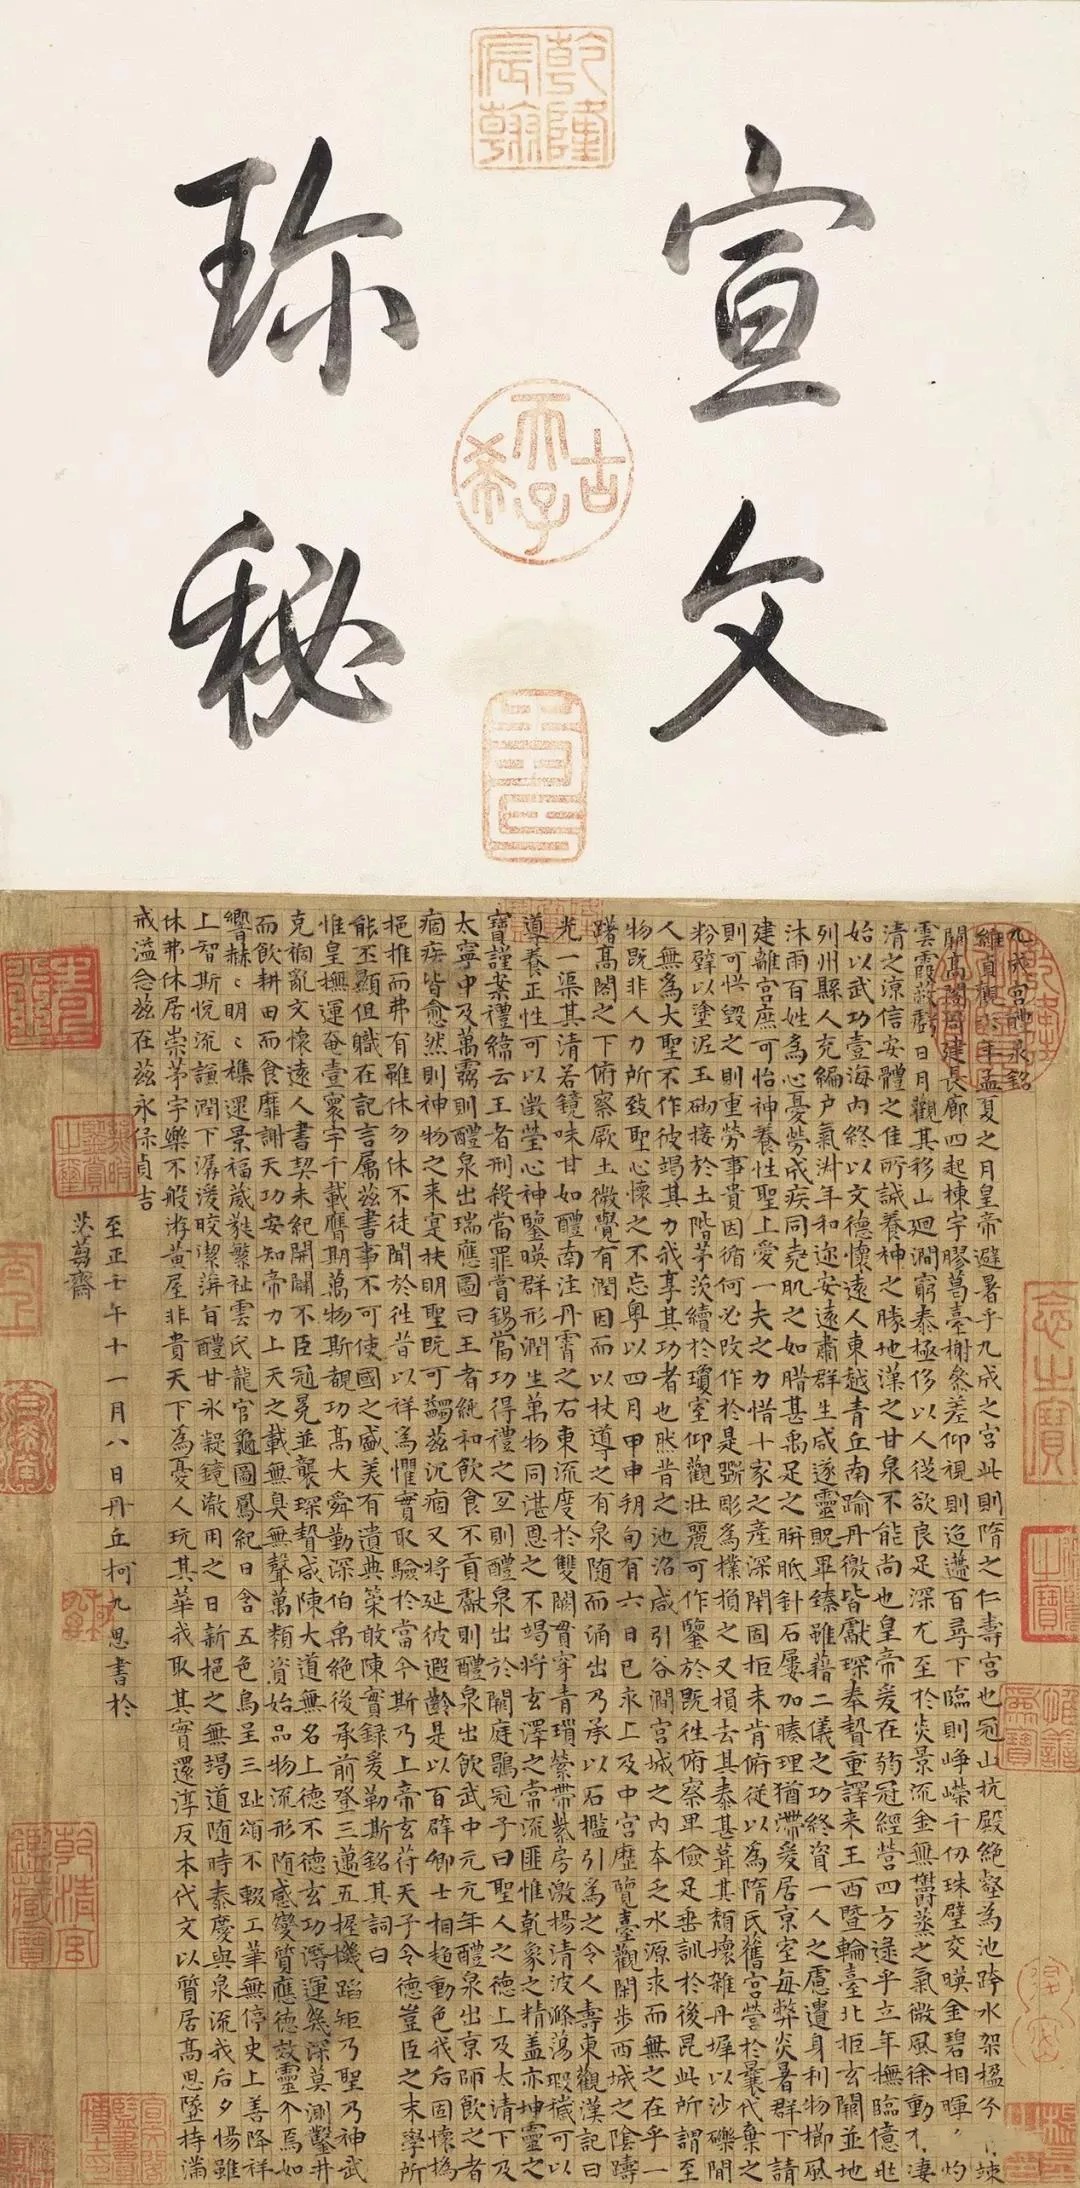 乾隆宸翰
宣文
珎秘
古希天子
九成宮醴泉銘
維貞觀六年孟夏之月皇帝避暑乎九成之宮此則隋之仁壽宮也冠山抗殿絕壑為池跨水架楹分竦
闕高閣周建長廊四起棟宇膠葛臺榭參差仰視則迢遰百尋下臨則崢嶸千仞珠璧交暎金碧相暉灼
雲霞蔽虧日月觀其移山迴澗窮泰極侈以人從欲良足深尤至於炎景流金無欝蒸之氣微風徐動有淒
清之涼信安體之佳所誠養神之勝地漢之甘泉不能尚也皇帝爰在弱冠經營四方逮乎立年撫臨億兆
始以武功壹海內終以文德懷遠人東越青丘南踰丹徼皆獻琛奉贄重譯来王西暨輪臺北拒玄闕並地
列州縣人充編户氣淑年和迩安遠肅群生咸遂靈貺畢臻雖藉二儀之功終資一人之慮遺身利物櫛風
沐雨百姓為心憂勞成疾同堯肌之如腊甚禹足之胼胝針石屢加腠理猶滯爰居京室每弊炎暑群下請
建離宮庶可怡神養性聖上愛一夫之力惜十家之產深閉固拒未肯俯從以為隋氏舊宮營於曩代棄之
則可惜毀之則重勞事貴因循何必改作於是斲彫為樸損之又損去其泰甚葺其頹壞雜丹墀以沙礫間
粉壁以塗泥玉砌接於土階茅茨續於瓊室仰觀壯麗可作鑒於既往俯察卑儉足垂訓於後昆此所謂至
人無為大聖不作彼竭其力我享其功者也然昔之池沼咸引谷澗宮城之內本乏水源求而無之在乎一
物既非人力所致聖心懷之不忘粵以四月甲申朔旬有六日己亥上及中宮歷覽臺觀閑步西城之陰躊
躇高閣之下俯察厥土微覺有潤因而以杖導之有泉随而涌出乃承以石檻引為之令人壽東觀漢記曰
光一渠其清若鏡味甘如醴南注丹霄之右東流度於雙闕貫穿青瑣縈帶紫房激揚清波滌蕩瑕穢可以
導養正性可以澂瑩心神鑒暎群形潤生萬物同湛恩之不竭將玄澤之常流匪惟乾象之精蓋亦坤靈之
寶謹案禮緯云王者刑殺當罪賞錫當功得禮之宜則醴泉出於闕庭鶡冠子曰聖人之德上及太清下及
太寧中及萬靈則醴泉出瑞應圖曰王者純和飲食不貢獻則醴泉出飲武中元元年醴泉出京師飲之者
痼疾皆愈然則神物之来寔扶明聖既可蠲茲沉痼又將延彼遐齡是以百辟卿士相趨動色我后固懷撝
挹推而弗有雖休勿休不徒聞於往昔以祥為懼實取驗於當今斯乃上帝玄符天子令德豈臣之末學所
能丕顯但職在記言屬茲書事不可使國之盛美有遺典策敢陳實録爰勒斯銘其詞曰
惟皇撫運奄壹寰宇千載膺期萬物斯覩功高大舜勤深伯禹絕後承前登三邁五握機蹈矩乃聖乃神武
克禍亂文懷遠人書契未紀開闢不臣冠冕並襲琛贄咸陳大道無名上德不德玄功潛運幾深莫測鑿井
而飲耕田而食靡謝天功安知帝力上天之載無臭無聲萬類資始品物流形隨感變質應德效靈介焉如
響赫〻明〻雜遝景福葳蕤繁祉雲氏龍官龜圖鳳紀日含五色烏呈三趾頌不輟工筆無停史上善降祥
上智斯悅流謙潤下潺湲皎潔蓱旨醴甘冰凝鏡澈用之日新挹之無竭道随時泰慶與泉流我后夕惕雖
休弗休居崇茅宇樂不般游黃屋非貴天下為憂人玩其華我取其實還淳反本代文以質居高思墜持滿
戒溢念茲在茲永保貞吉
至正壬午十一月八日丹丘柯九思書於
茨蒭齋
乾清宮鑒藏寶